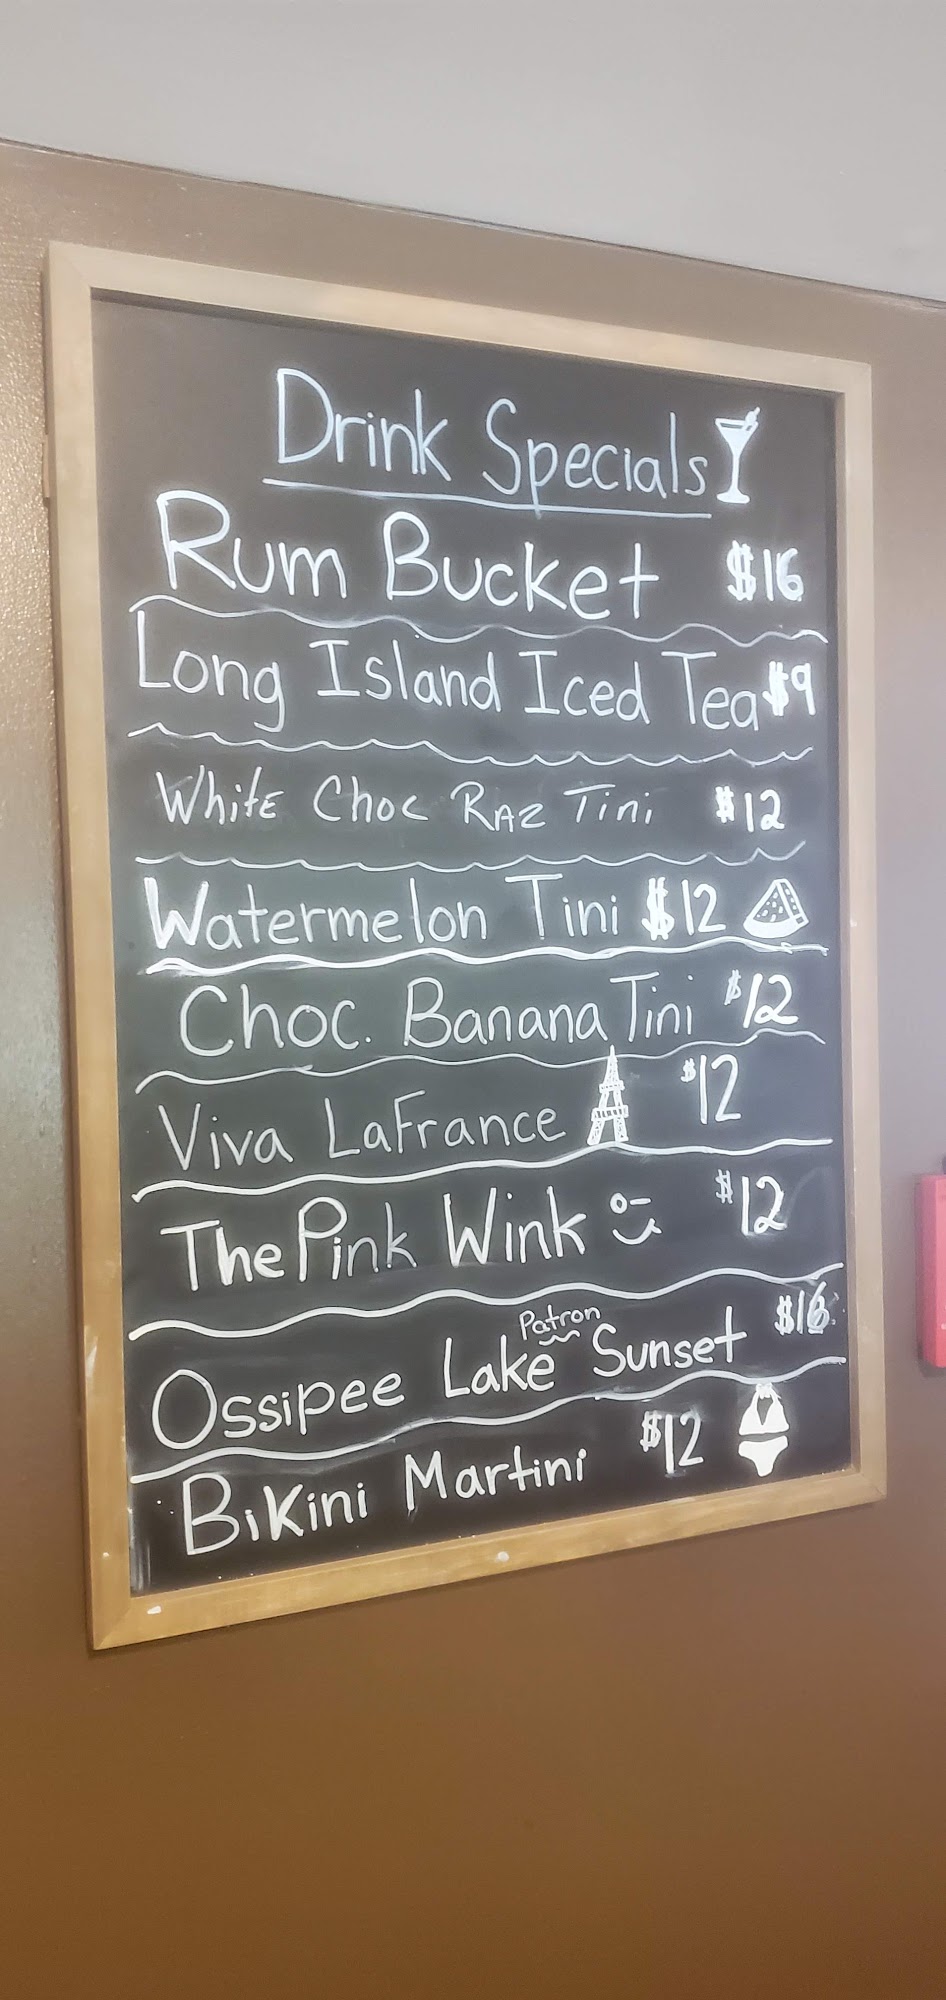 Drink Specials
Rum Bucket $16
Long Island Iced Tea $9
White Choc Raz Tini $12
Watermelon Tini $12
Choc. Banana Tini $12
Viva LaFrance $12
The Pink Wink $12
Patron
Ossipee Lake Sunset $16
Bikini Martini $12